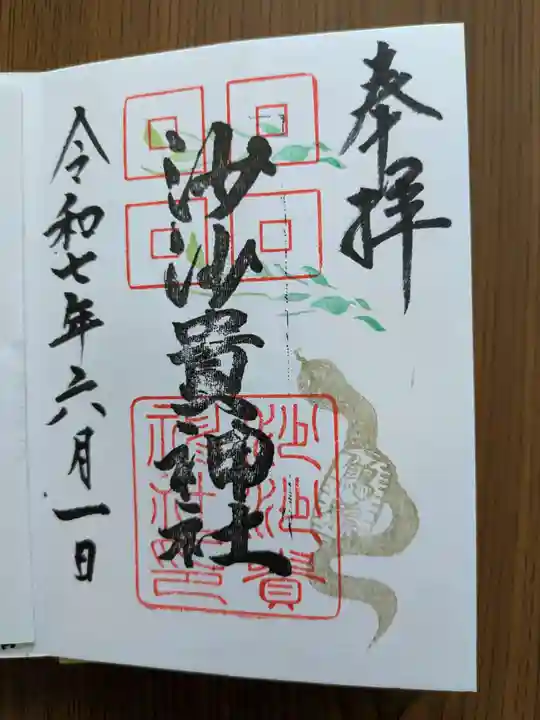 奉拝
沙沙貴神社
沙沙貴
神社印
令和七年六月一日